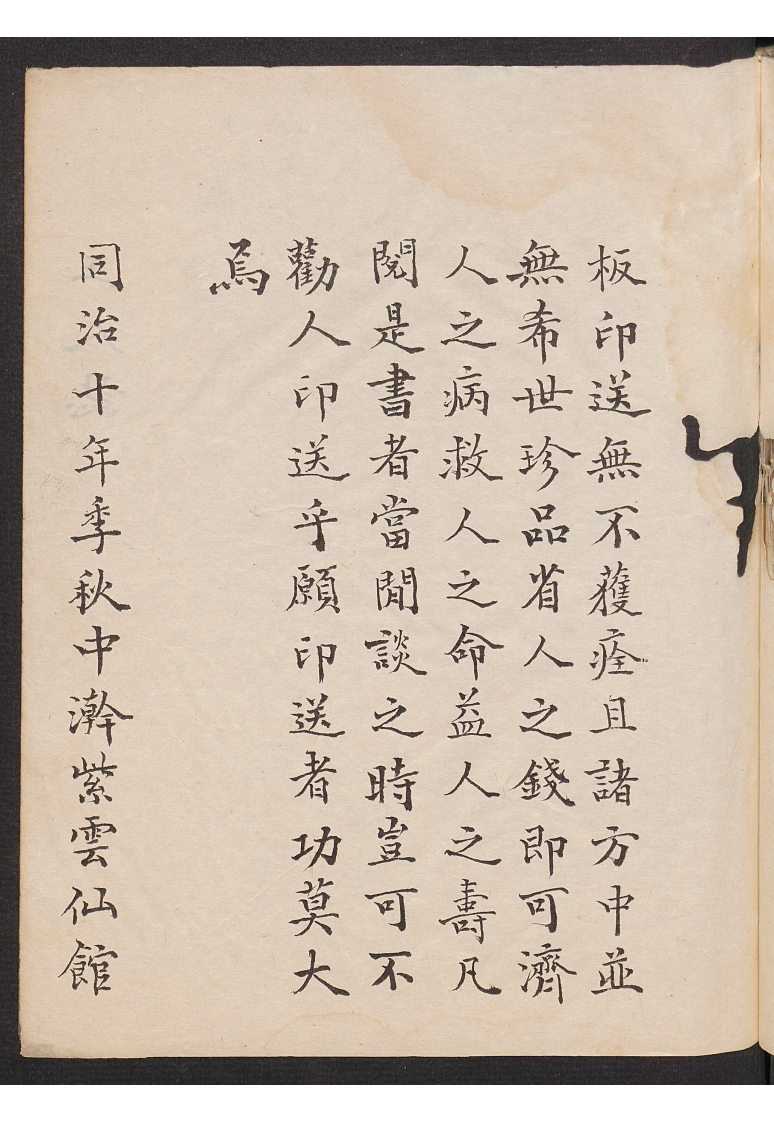 板印送無不獲痊且諸方中並
無希世珍品省人之錢即可濟
人之病救人之命益人之壽凡
閱是書者當閒談之時豈可不
勸人印送乎願印送者功莫大
焉
同治十年季秋中澣紫雲仙館